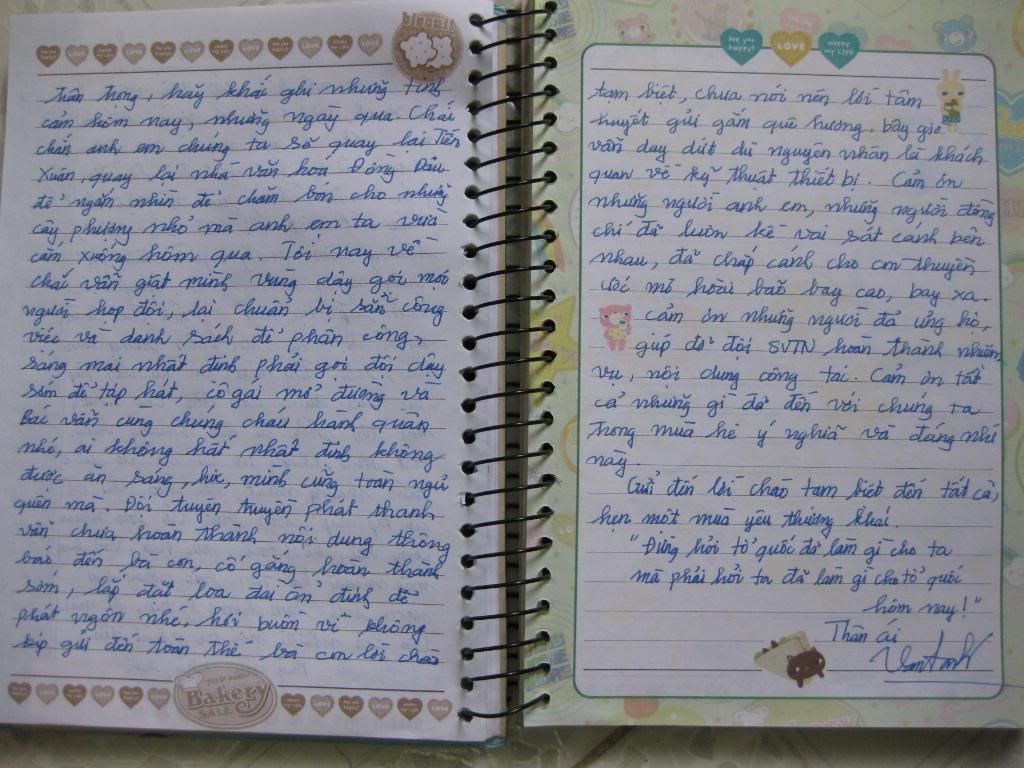 biscuit
trân trọng, hãy khái ghi những tình
cảm hôm nay, những ngày qua. Chắc
chắn anh em chúng ta sẽ quay lại Tiến
Xuân, quay lại nhà văn hoá Đồng Dâu
để ngắm nhìn để chăm bón cho những
cây phượng nhỏ mà anh em ta vừa
cắm xuống hôm qua. Tối nay về
chắc vẫn giật mình vùng dậy gọi mọi
người họp đội, lại chuẩn bị sẵn công
việc và danh sách để phân công,
sáng mai nhất định phải gọi đội dậy
sớm để tập hát, cô gái mở đường và
Bác vẫn cùng chúng cháu hành quân
nhé, ai không hát nhất định không
được ăn sáng, hic, mình cũng toàn ngủ
quên mà. Đội tuyên truyền phát thanh
vẫn chưa hoàn thành nội dung thông
báo, đến bà con, cố gắng hoàn thành
sớm, lắp đặt loa đài ổn định để
phát ngôn nhé, hơi buồn vì không
kịp gửi đến toàn thể bà con lời chào
Bakery
SALE
Are you happy?
LOVE
HAPPY MY LIFE
tạm biệt, chưa nói nên lời tâm
huyết gửi gắm quê hương. bây giờ
vẫn day dứt dù nguyên nhân là khách
quan về kỹ thuật thiết bị. Cảm ơn
những người anh em, những người đồng
chí đã luôn kề vai sát cánh bên
nhau, đã chắp cánh cho con thuyền
ước mơ hoài bão bay cao, bay xa.
Cảm ơn những người đã ủng hộ,
giúp đỡ đội SVTN hoàn thành nhiệm
vụ, nội dung công tác. Cảm ơn tất
cả những gì đã đến với chúng ta
trong mùa hè ý nghĩa và đáng nhớ
này.
Gửi đến lời chào tạm biệt đến tất cả,
hẹn một mùa yêu thương khác.
"Đừng hỏi tổ quốc đã làm gì cho ta
mà phải hỏi ta đã làm gì cho tổ quốc
hôm nay!"
Thân ái